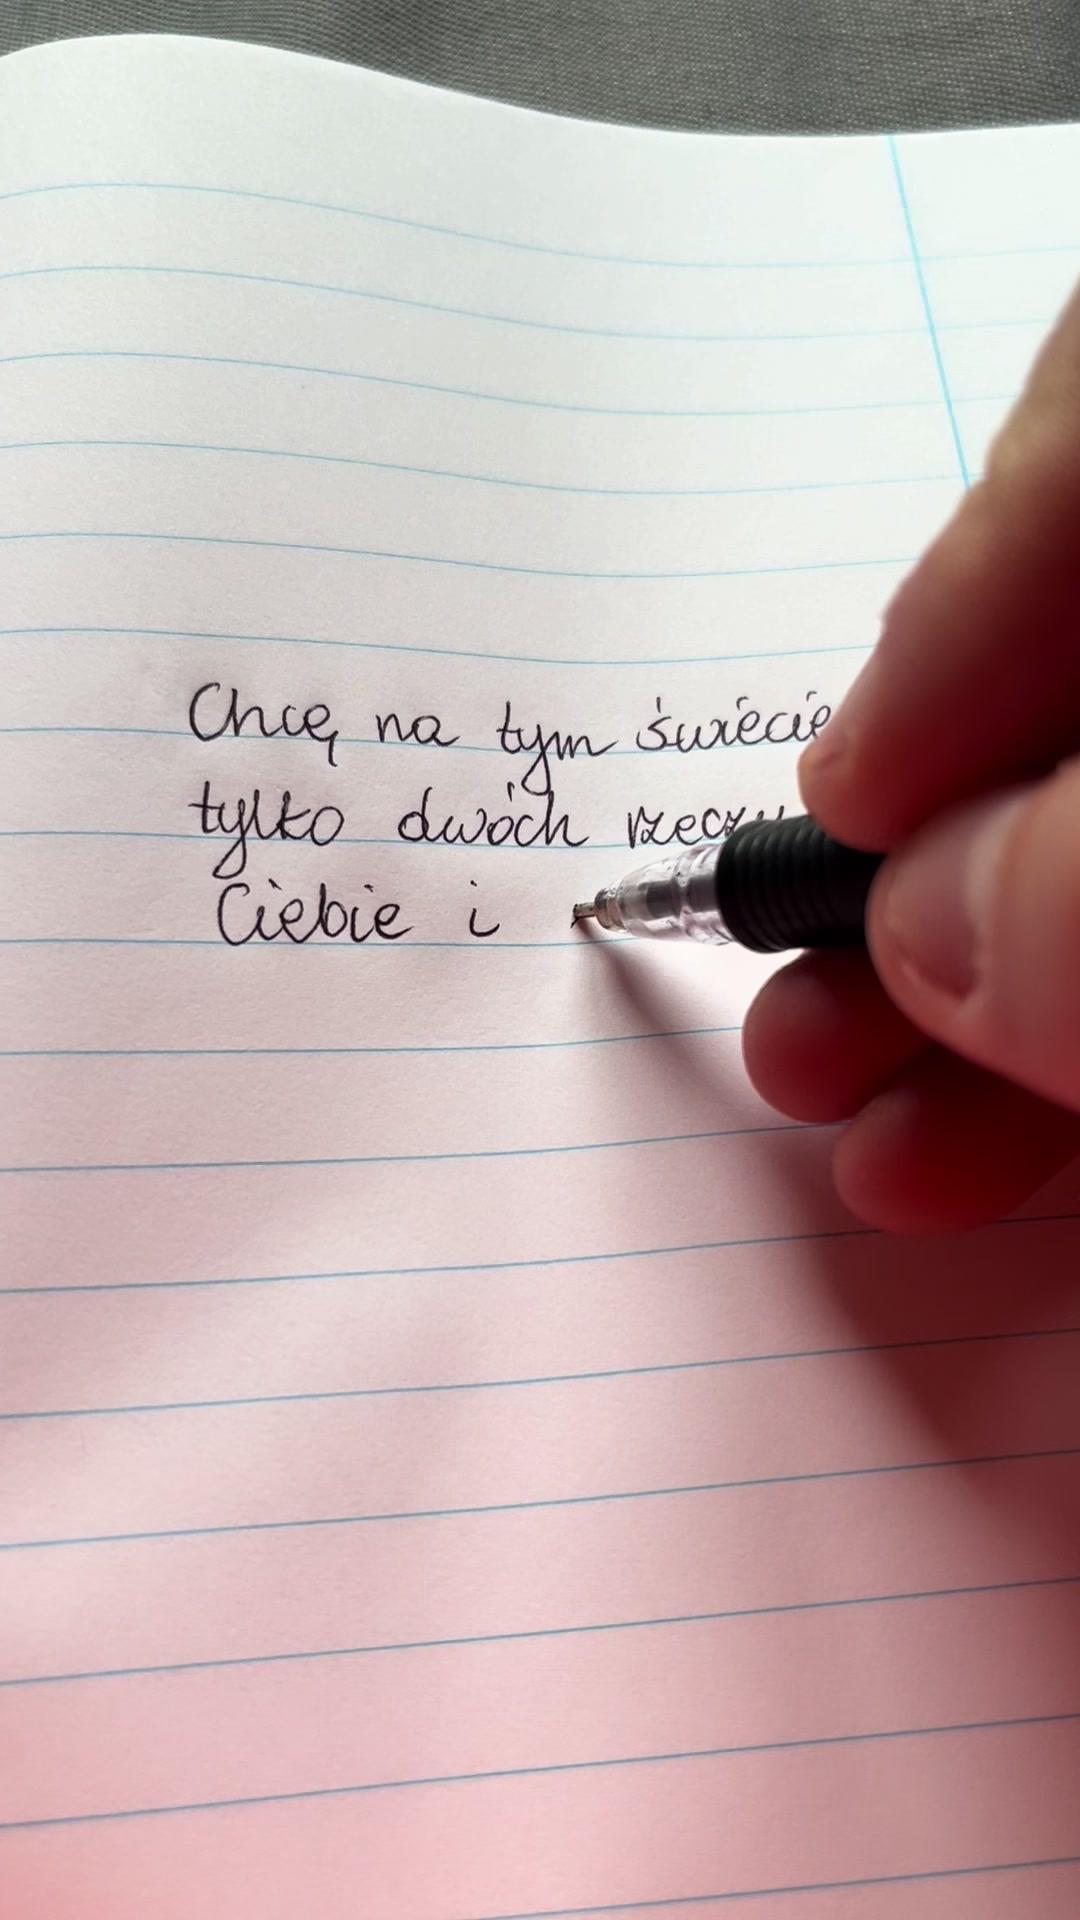 Chcę na tym świecie
tylko dwóch rzeczy
Ciebie i